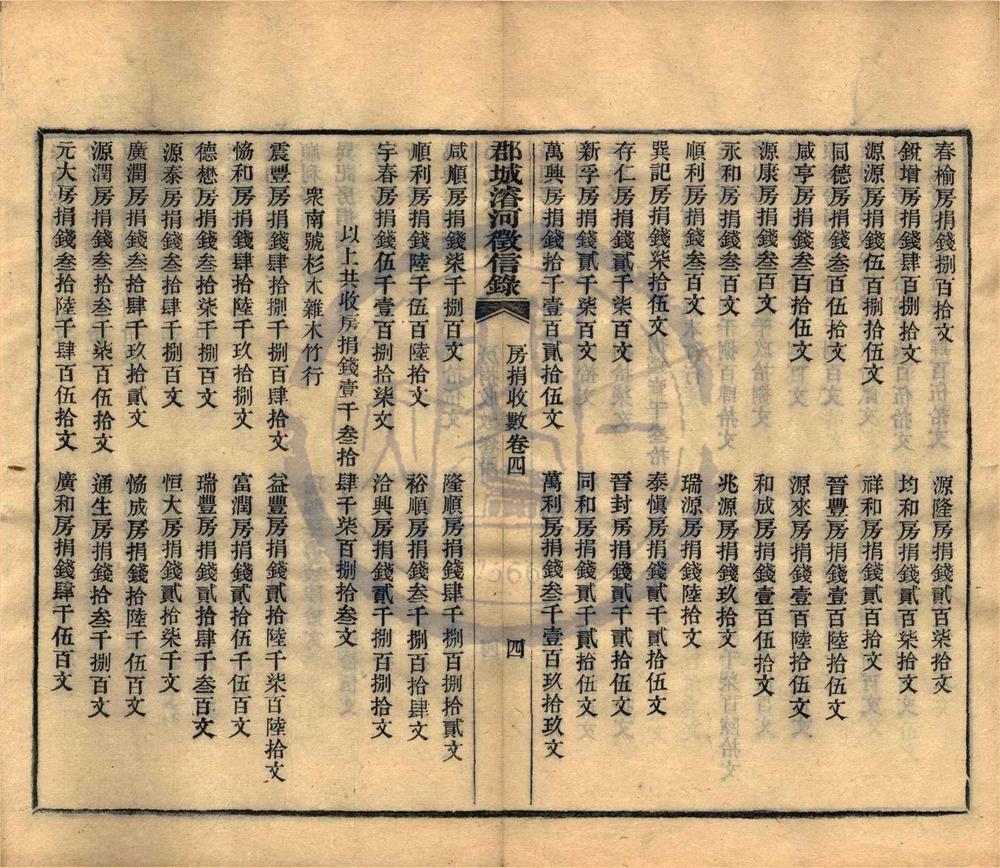 春榆房捐錢捌百拾文　源隆房捐錢貳百柒拾文
銳增房捐錢肆百捌拾文　均和房捐錢貳百柒拾文
源源房捐錢伍百捌拾伍文　祥和房捐錢貳百拾文
同德房捐錢叁百伍拾文　晉豐房捐錢壹百陸拾伍文
咸亨房捐錢叁百拾伍文　源來房捐錢壹百陸拾伍文
源康房捐錢叁百文　和成房捐錢壹百伍拾文
永和房捐錢叁百文　兆源房捐錢玖拾文
順利房捐錢叁百文　瑞源房捐錢陸拾文
巽記房捐錢柒拾伍文　泰愼房捐錢貳千貳拾伍文
存仁房捐錢貳千柒百文　晉封房捐錢貳千貳拾伍文
新孚房捐錢貳千柒百文　同和房捐錢貳千貳拾伍文
萬興房捐錢拾千壹百貳拾伍文　萬利房捐錢叁千壹百玖拾玖文
郡城濬河徵信錄　房捐收數卷四　四
咸順房捐錢柒千捌百文　隆順房捐錢肆千捌百捌拾貳文
順利房捐錢陸千伍百陸拾文　裕順房捐錢叁千捌百拾肆文
宇春房捐錢伍千壹百捌拾柒文　洽興房捐錢貳千捌百捌拾文
以上共收房捐錢壹千叁拾肆千柒百捌拾叁文
衆南號杉木雜木竹行
震豐房捐錢肆拾捌千肆百肆拾文　益豐房捐錢貳拾陸千柒百陸拾文
恊和房捐錢肆拾陸千玖拾捌文　富潤房捐錢貳拾伍千伍百文
德懋房捐錢叁拾柒千捌百文　瑞豐房捐錢貳拾肆千叁百文
源泰房捐錢叁拾肆千捌百文　恒大房捐錢貳拾柒千文
廣潤房捐錢叁拾肆千玖拾貳文　恊成房捐錢拾陸千伍百文
源潤房捐錢叁拾叁千柒百伍拾文　通生房捐錢拾叁千捌百文
元大房捐錢叁拾陸千肆百伍拾文　廣和房捐錢肆千伍百文